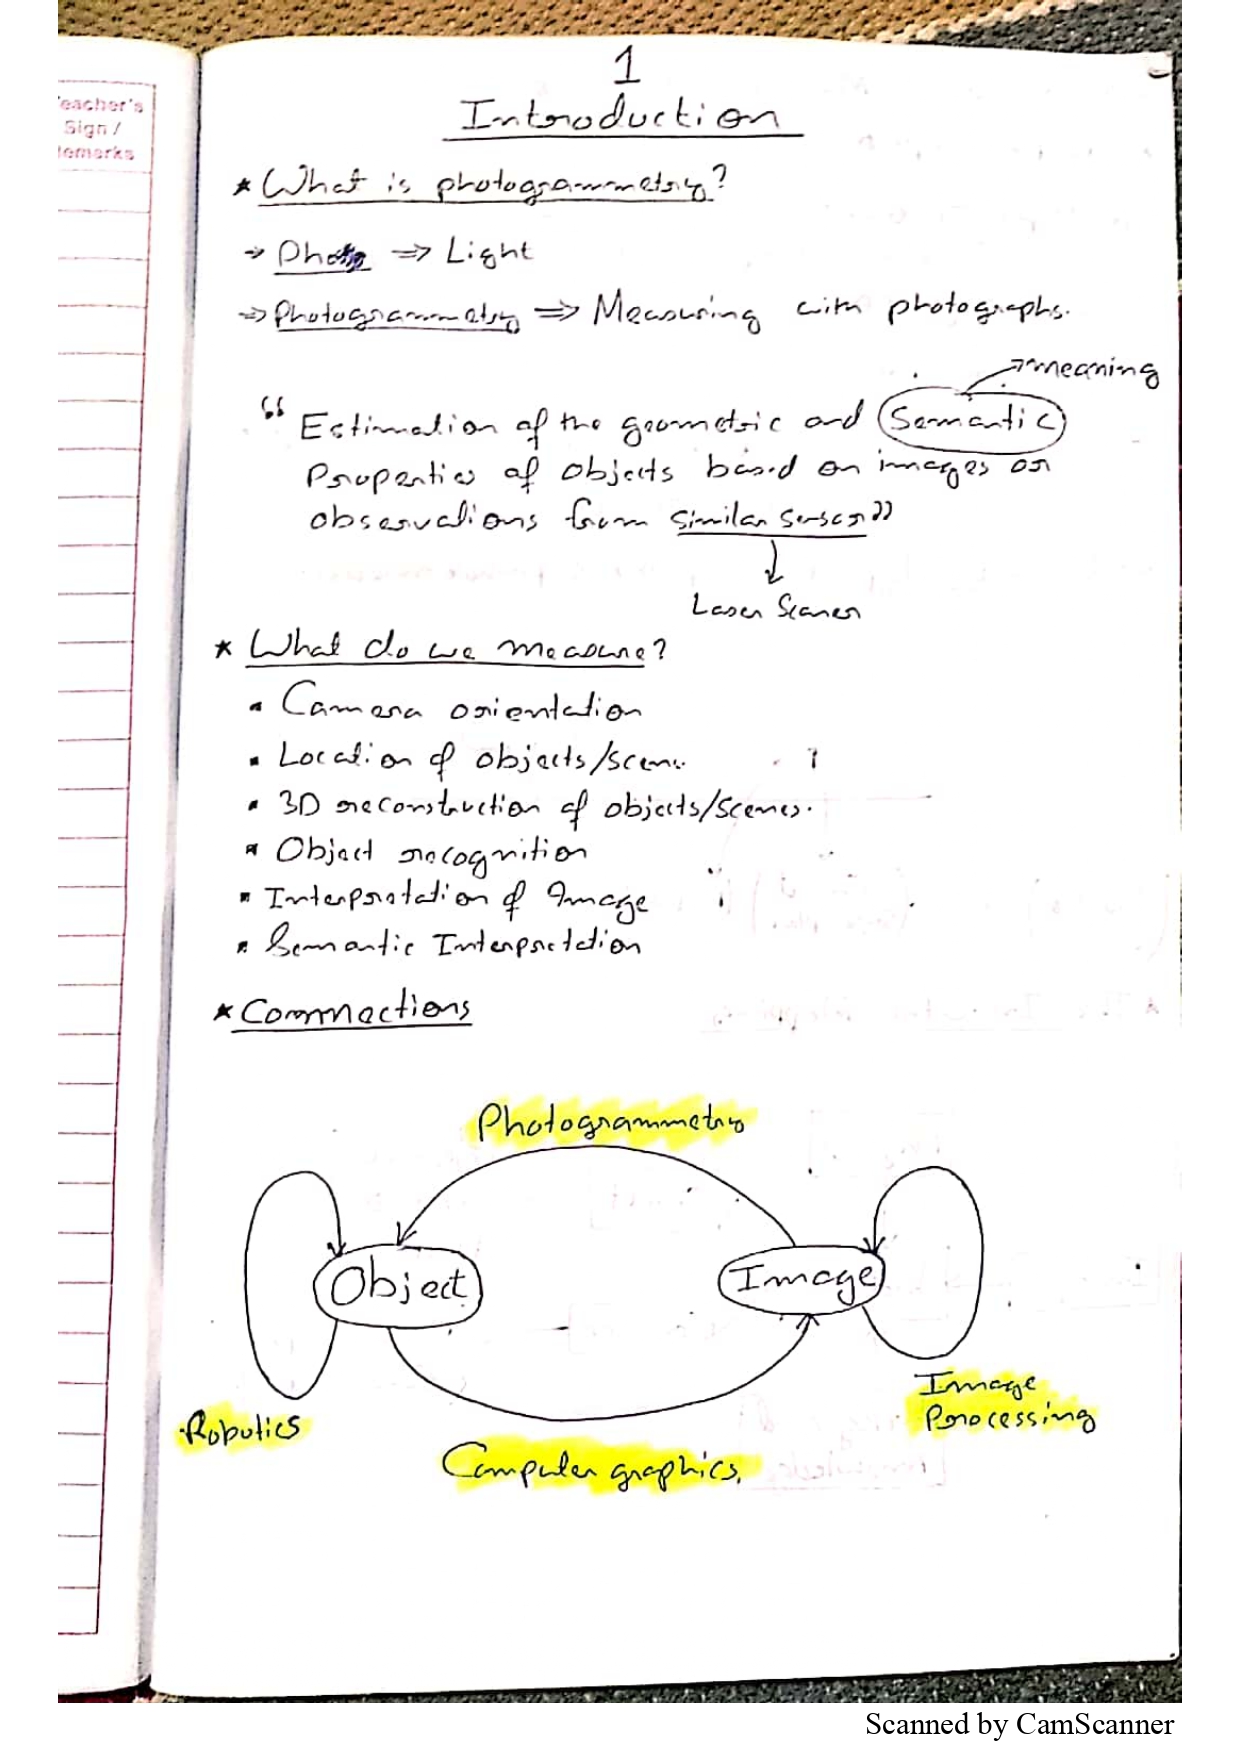 Teacher's
Sign /
Remarks
1
Introduction
* What is photogrammetry?
→ Photo ⇒ Light
⇒ Photogrammetry ⇒ Measuring with photographs.
→ meaning
“ Estimation of the geometric and Semantic
Properties of objects based on images or
observations from similar sensor”
Laser Scaner
* What do we measure?
▪ Camera orientation
▪ Location of objects/scene
▪ 3D reconstruction of objects/scenes.
▪ Object recognition
▪ Interpretation of Image
▪ Semantic Interpretation
* Connections
Photogrammetry
Object
Image
Image
Processing
Robotics
Computer graphics.
Scanned by CamScanner